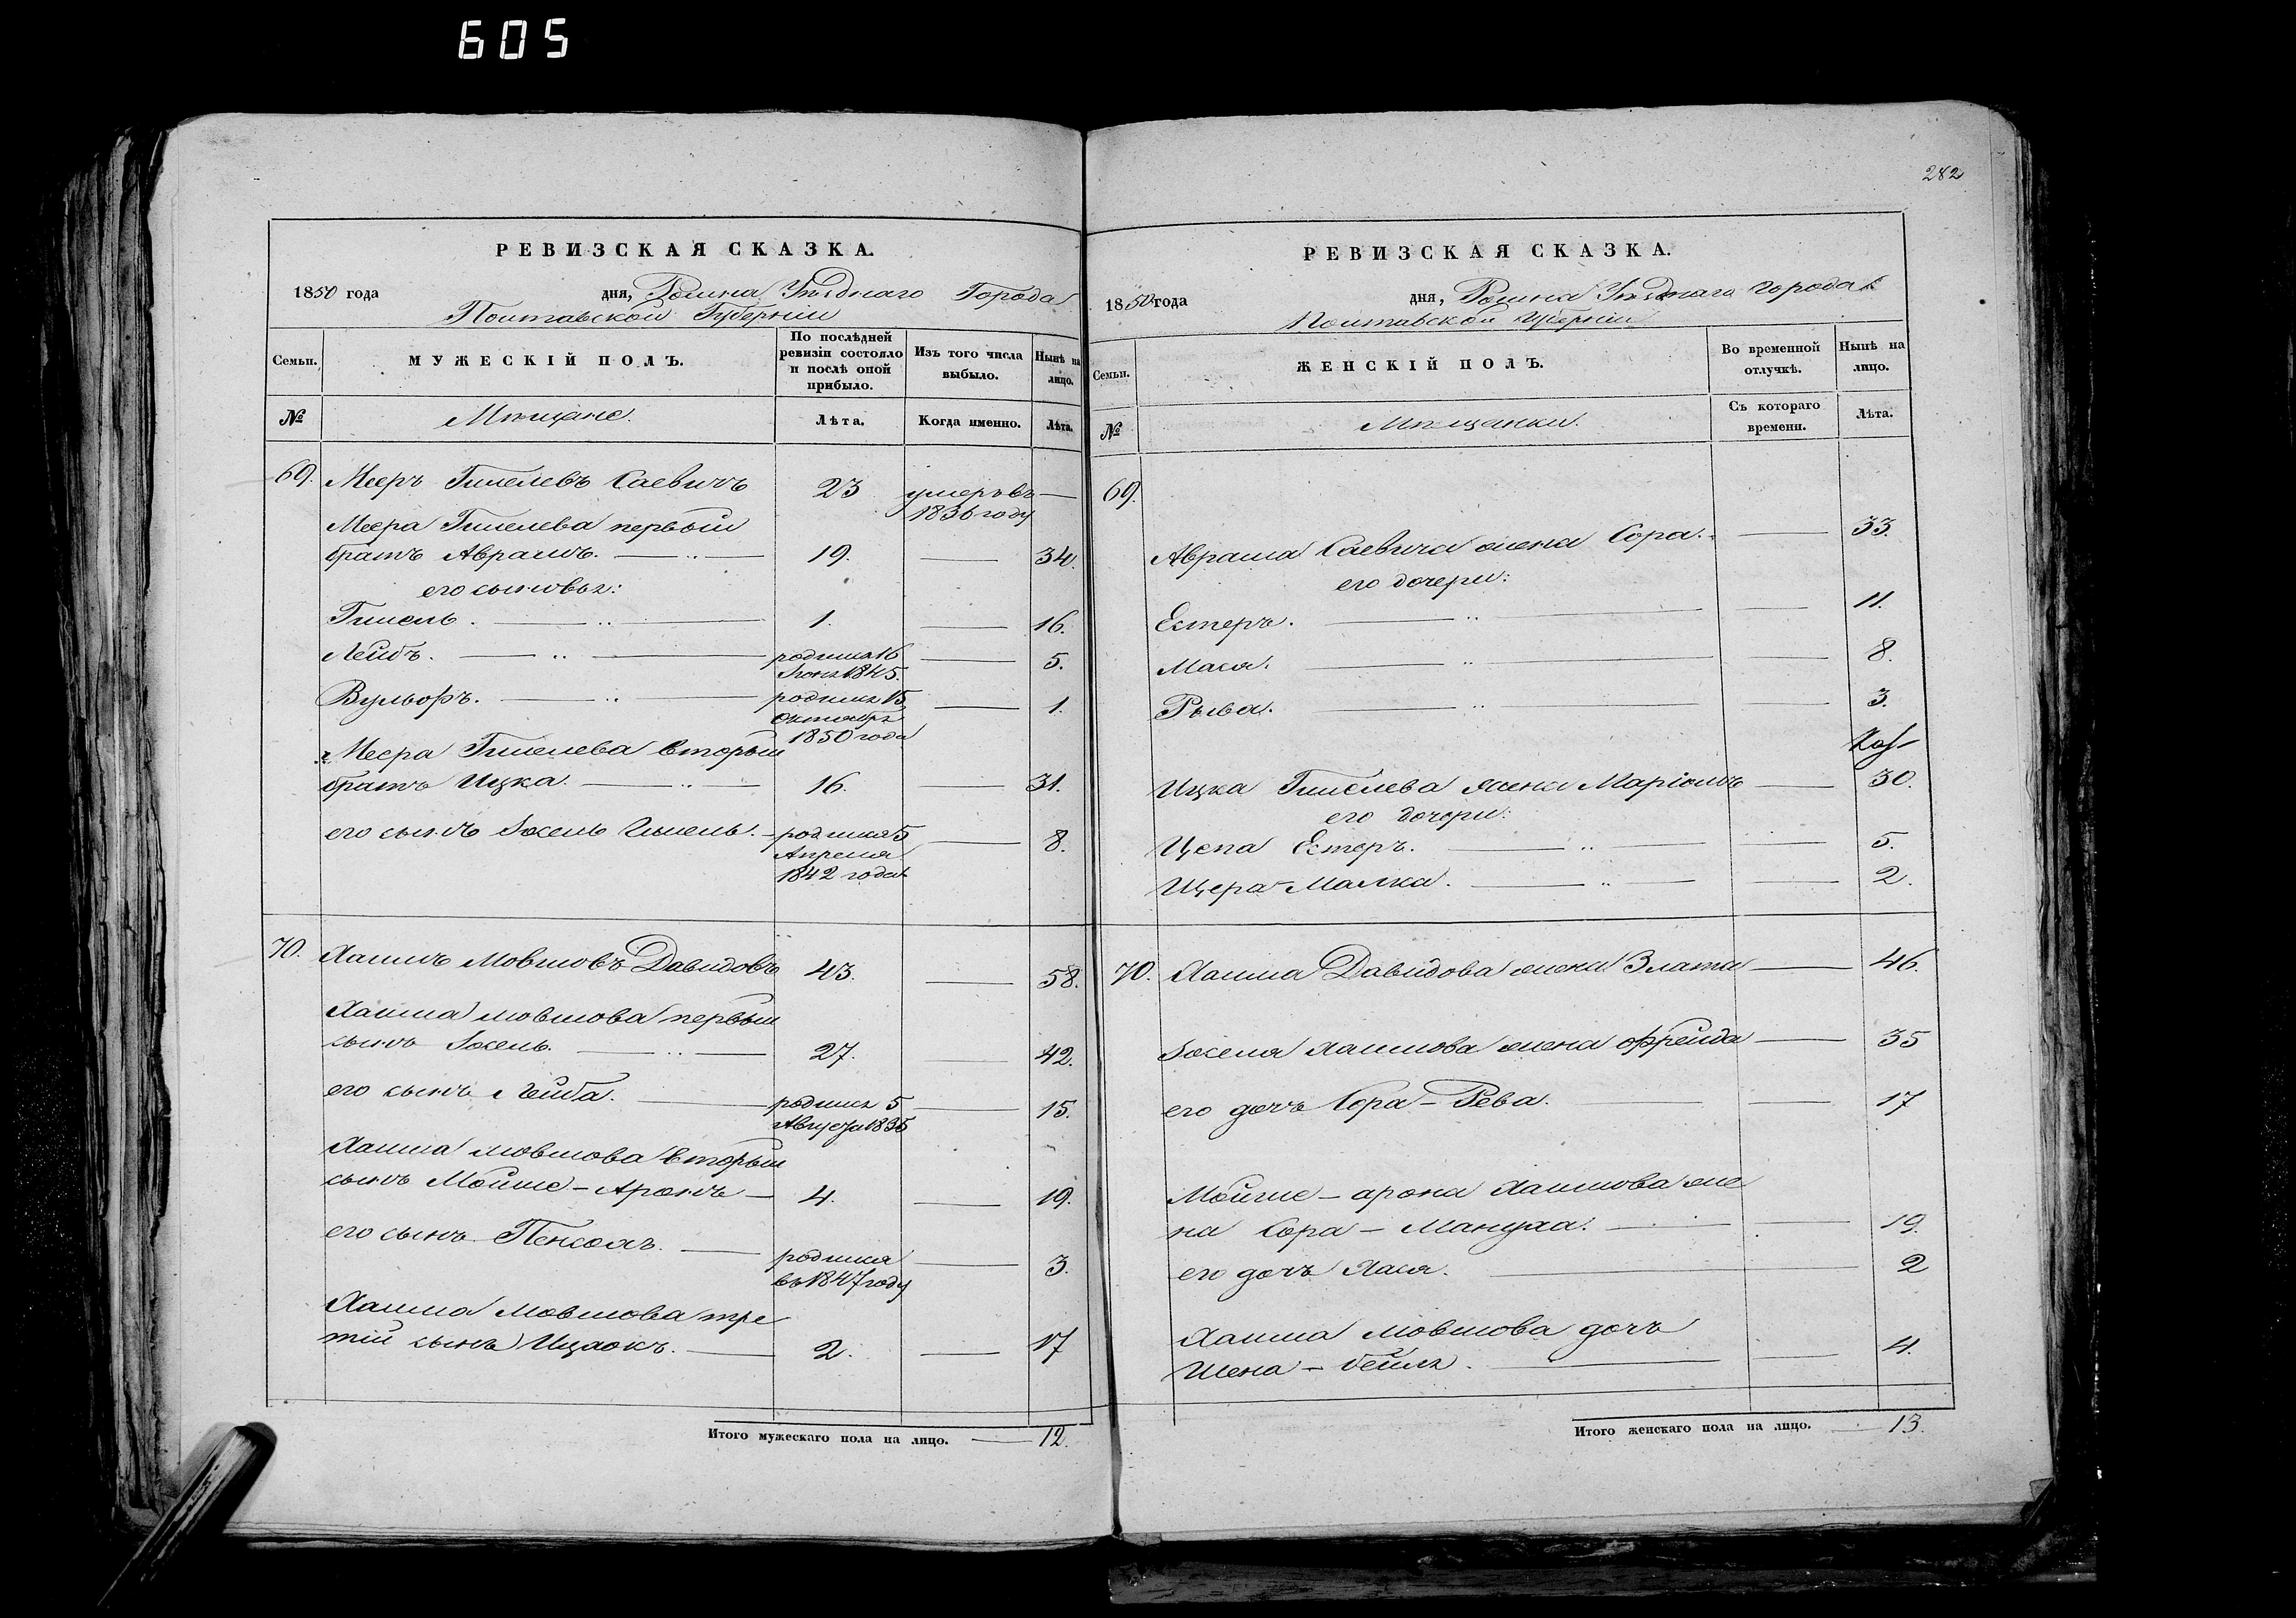 605
282
РЕВИЗСКАЯ СКАЗКА.
1850 года дня, Ромна Уѣзднаго Города
Полтавской Губерніи
Семьи. МУЖЕСКІЙ ПОЛЪ. По послѣдней ревизіи состояло и послѣ оной прибыло. Изъ того числа выбыло. Нынѣ на лицо.
№ Мѣщане. Лѣта. Когда именно. Лѣта.
69. Мееръ Гишелевъ Саевичъ 23 умеръ въ —
1836 году
Меера Гишелева первый
братъ Аврамъ. 19. — 34.
его сыновья:
Гишель. 1. — 16.
Лейбъ. родился 16 — 5.
1845.
Вульфъ. родился 15 — 1.
Октября
1850 года
Меера Гишелева вторый
братъ Ицка. 16. — 31.
его сынъ Іосель родился 5 — 8.
Апреля
1842 года
70. Хаимъ Мовшовъ Давидовъ 43. — 58.
Хаима Мовшова первый
сынъ Іосель. 27. — 42.
его сынъ Лейба. родился 5 — 15.
Августа 1835
Хаима Мовшова вторый
сынъ Мойше-Аронъ — 4. — 19.
его сынъ родился — 3.
въ 1847 году
Хаима Мовшова тре
тій сынъ Ицхокъ. 2. — 17
Итого мужескаго пола на лицо. — 12.
РЕВИЗСКАЯ СКАЗКА.
1850 года дня, Ромна Уѣзднаго города
Полтавской Губерніи
Семьи. ЖЕНСКІЙ ПОЛЪ. Во временной отлучкѣ. Нынѣ на лицо.
№ Мѣщанки. Съ котораго времени. Лѣта.
69.
Аврама Саевича жена Сора. — 33.
его дочери:
Естеръ. — 11.
Мася. — 8.
Рыва. — 3.
Ицка Гишелева жена Маріамъ — 30.
его дочери:
Цепа Естеръ. — 5.
Малка. — 2.
70. Хаима Давидова жена Злата — 46.
Іоселя Хаимова жена Фрейда — 35
его дочь Сора-Рева. — 17
Мойше-арона Хаимова же
на Сора-Мануха. — 19.
его дочь Хася. — 2
Хаима Мовшова дочь
Шена-бейля. — 4.
Итого женскаго пола на лицо. — 13.